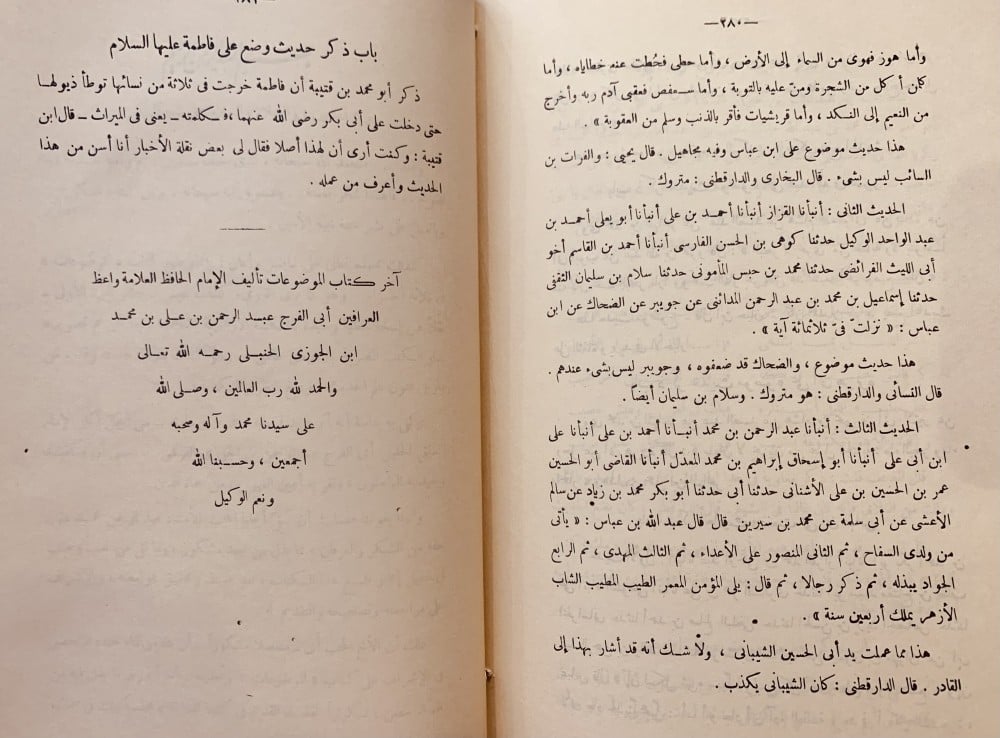 —٣٨٠—
وأما هوز فهوى من السماء إلى الأرض، وأما حطى فحُطت عنه خطاياه، وأما
كلمن أكل من الشجرة ومنّ عليه بالتوبة، وأما سعفص فعقبى آدم ربه وأخرج
من النعيم إلى النكد، وأما قريشيات فأقر بالذنب وسلم من العقوبة».
هذا حديث موضوع على ابن عباس وفيه مجاهيل. قال يحيى: والفرات بن
السائب ليس بشىء. قال البخارى والدارقطنى: متروك.
الحديث الثانى: أنبأنا القزاز أنبأنا أحمد بن على أنبأنا أبو يعلى أحمد بن
عبد الواحد الوكيل حدثنا كوهى بن الحسن الفارسى أنبأنا أحمد بن القاسم أخو
أبى الليث الفرائضى حدثنا محمد بن حبس المأمونى حدثنا سلام بن سليمان الثقفى
حدثنا إسماعيل بن محمد بن عبد الرحمن المدائنى عن جويبر عن الضحاك عن ابن
عباس: «نزلت فىّ ثلاثمائة آية».
هذا حديث موضوع، والضحاك قد ضعفوه، وجويبر ليس بشىء عندهم.
قال النسائى والدارقطنى: هو متروك. وسلام بن سليمان أيضاً.
الحديث الثالث: أنبأنا عبد الرحمن بن محمد أنبأنا أحمد بن على أنبأنا على
ابن أبى على أنبأنا أبو إسحاق إبراهيم بن محمد المعدّل أنبأنا القاضى أبو الحسين
عمر بن الحسين بن على الأشنانى حدثنا أبى حدثنا أبو بكر محمد بن زياد عن سالم
الأعشى عن أبي سلمة عن محمد بن سيرين قال قال عبد الله بن عباس: «يأتى
من ولدى السفاح، ثم الثانى المنصور على الأعداء، ثم الثالث المهدى، ثم الرابع
الجواد يبذله، ثم ذكر رجالا، ثم قال: يلى المؤمن المعمر الطيب المطيب الشاب
الأزهر يملك أربعين سنة».
هذا مما عملت يد أبى الحسين الشيبانى، ولا شك أنه قد أشار بهذا إلى
القادر. قال الدارقطنى: كان الشيبانى يكذب.
باب ذكر حديث وضع على فاطمة عليها السلام
ذكر أبو محمد بن قتيبة أن فاطمة خرجت فى ثلاثة من نسائها توطأ ذيولها
حتى دخلت على أبى بكر رضى الله عنهما، فكلمته ـ يعنى فى الميراث ـ قال ابن
قتيبة: وكنت أرى أن لهذا أصلا فقال لى بعض نقلة الأخبار أنا أسن من هذا
الحديث وأعرف من عمله.
آخر كتاب الموضوعات تأليف الإمام الحافظ العلامة واعظ
العراقين أبى الفرج عبد الرحمن بن على بن محمد
ابن الجوزى الحنبلى رحمه الله تعالى
والحمد لله رب العالمين، وصلى الله
على سيدنا محمد وآله وصحبه
أجمعين، وحسبنا الله
ونعم الوكيل